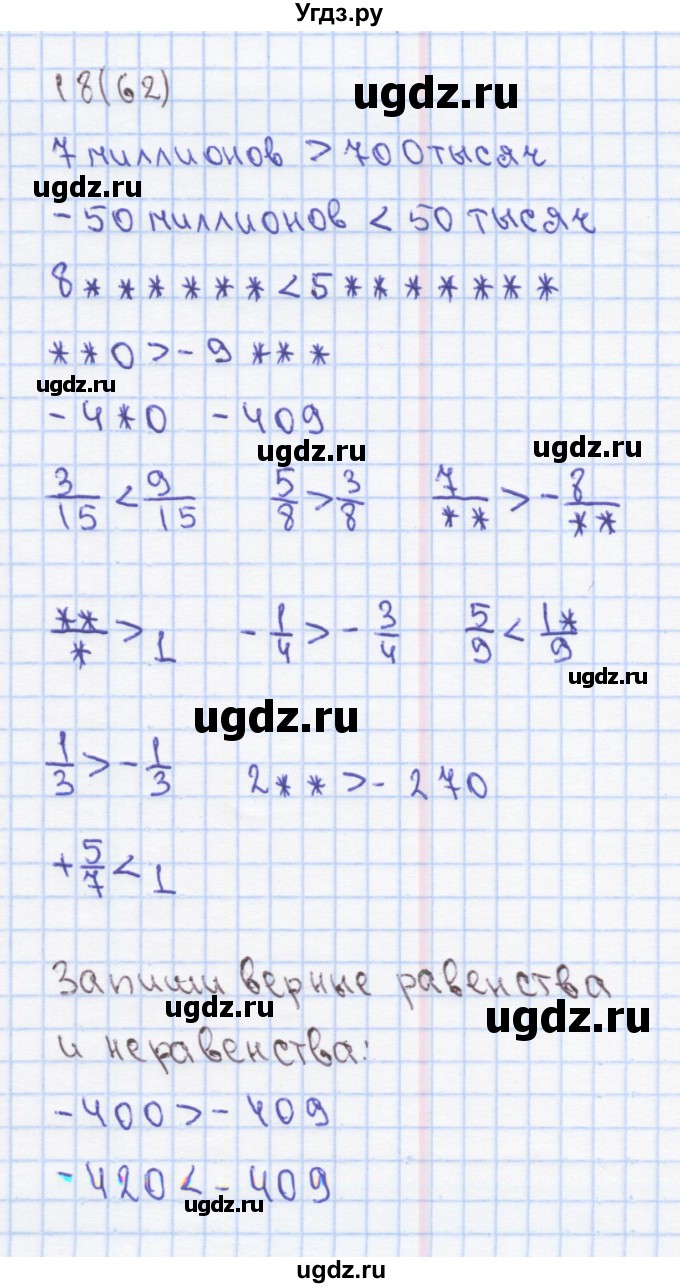 Угдз.ру
18(62)
ugdz.ru
7 миллионов > 700 тысяч
ugdz.ru
-50 миллионов < 50 тысяч
8 * * * * * * < 5 * * * * * * *
* * 0 > - 9 * * *
ugdz.ru
- 4 * 0 - 409
ugdz.ru
ugdz.ru
3/15 < 9/15 5/8 > 3/8 7/** > - 8/**
**/* > 1 - 1/4 > - 3/4 5/9 < 1*/9
ugdz.ru
ugdz.ru
1/3 > - 1/3 2 * * > - 270
+ 5/7 < 1
Запиши верные равенства
ugdz.ru
ugdz.ru
и неравенства:
-400 > - 409
-420 < - 409
ugdz.ru
ugdz.ru